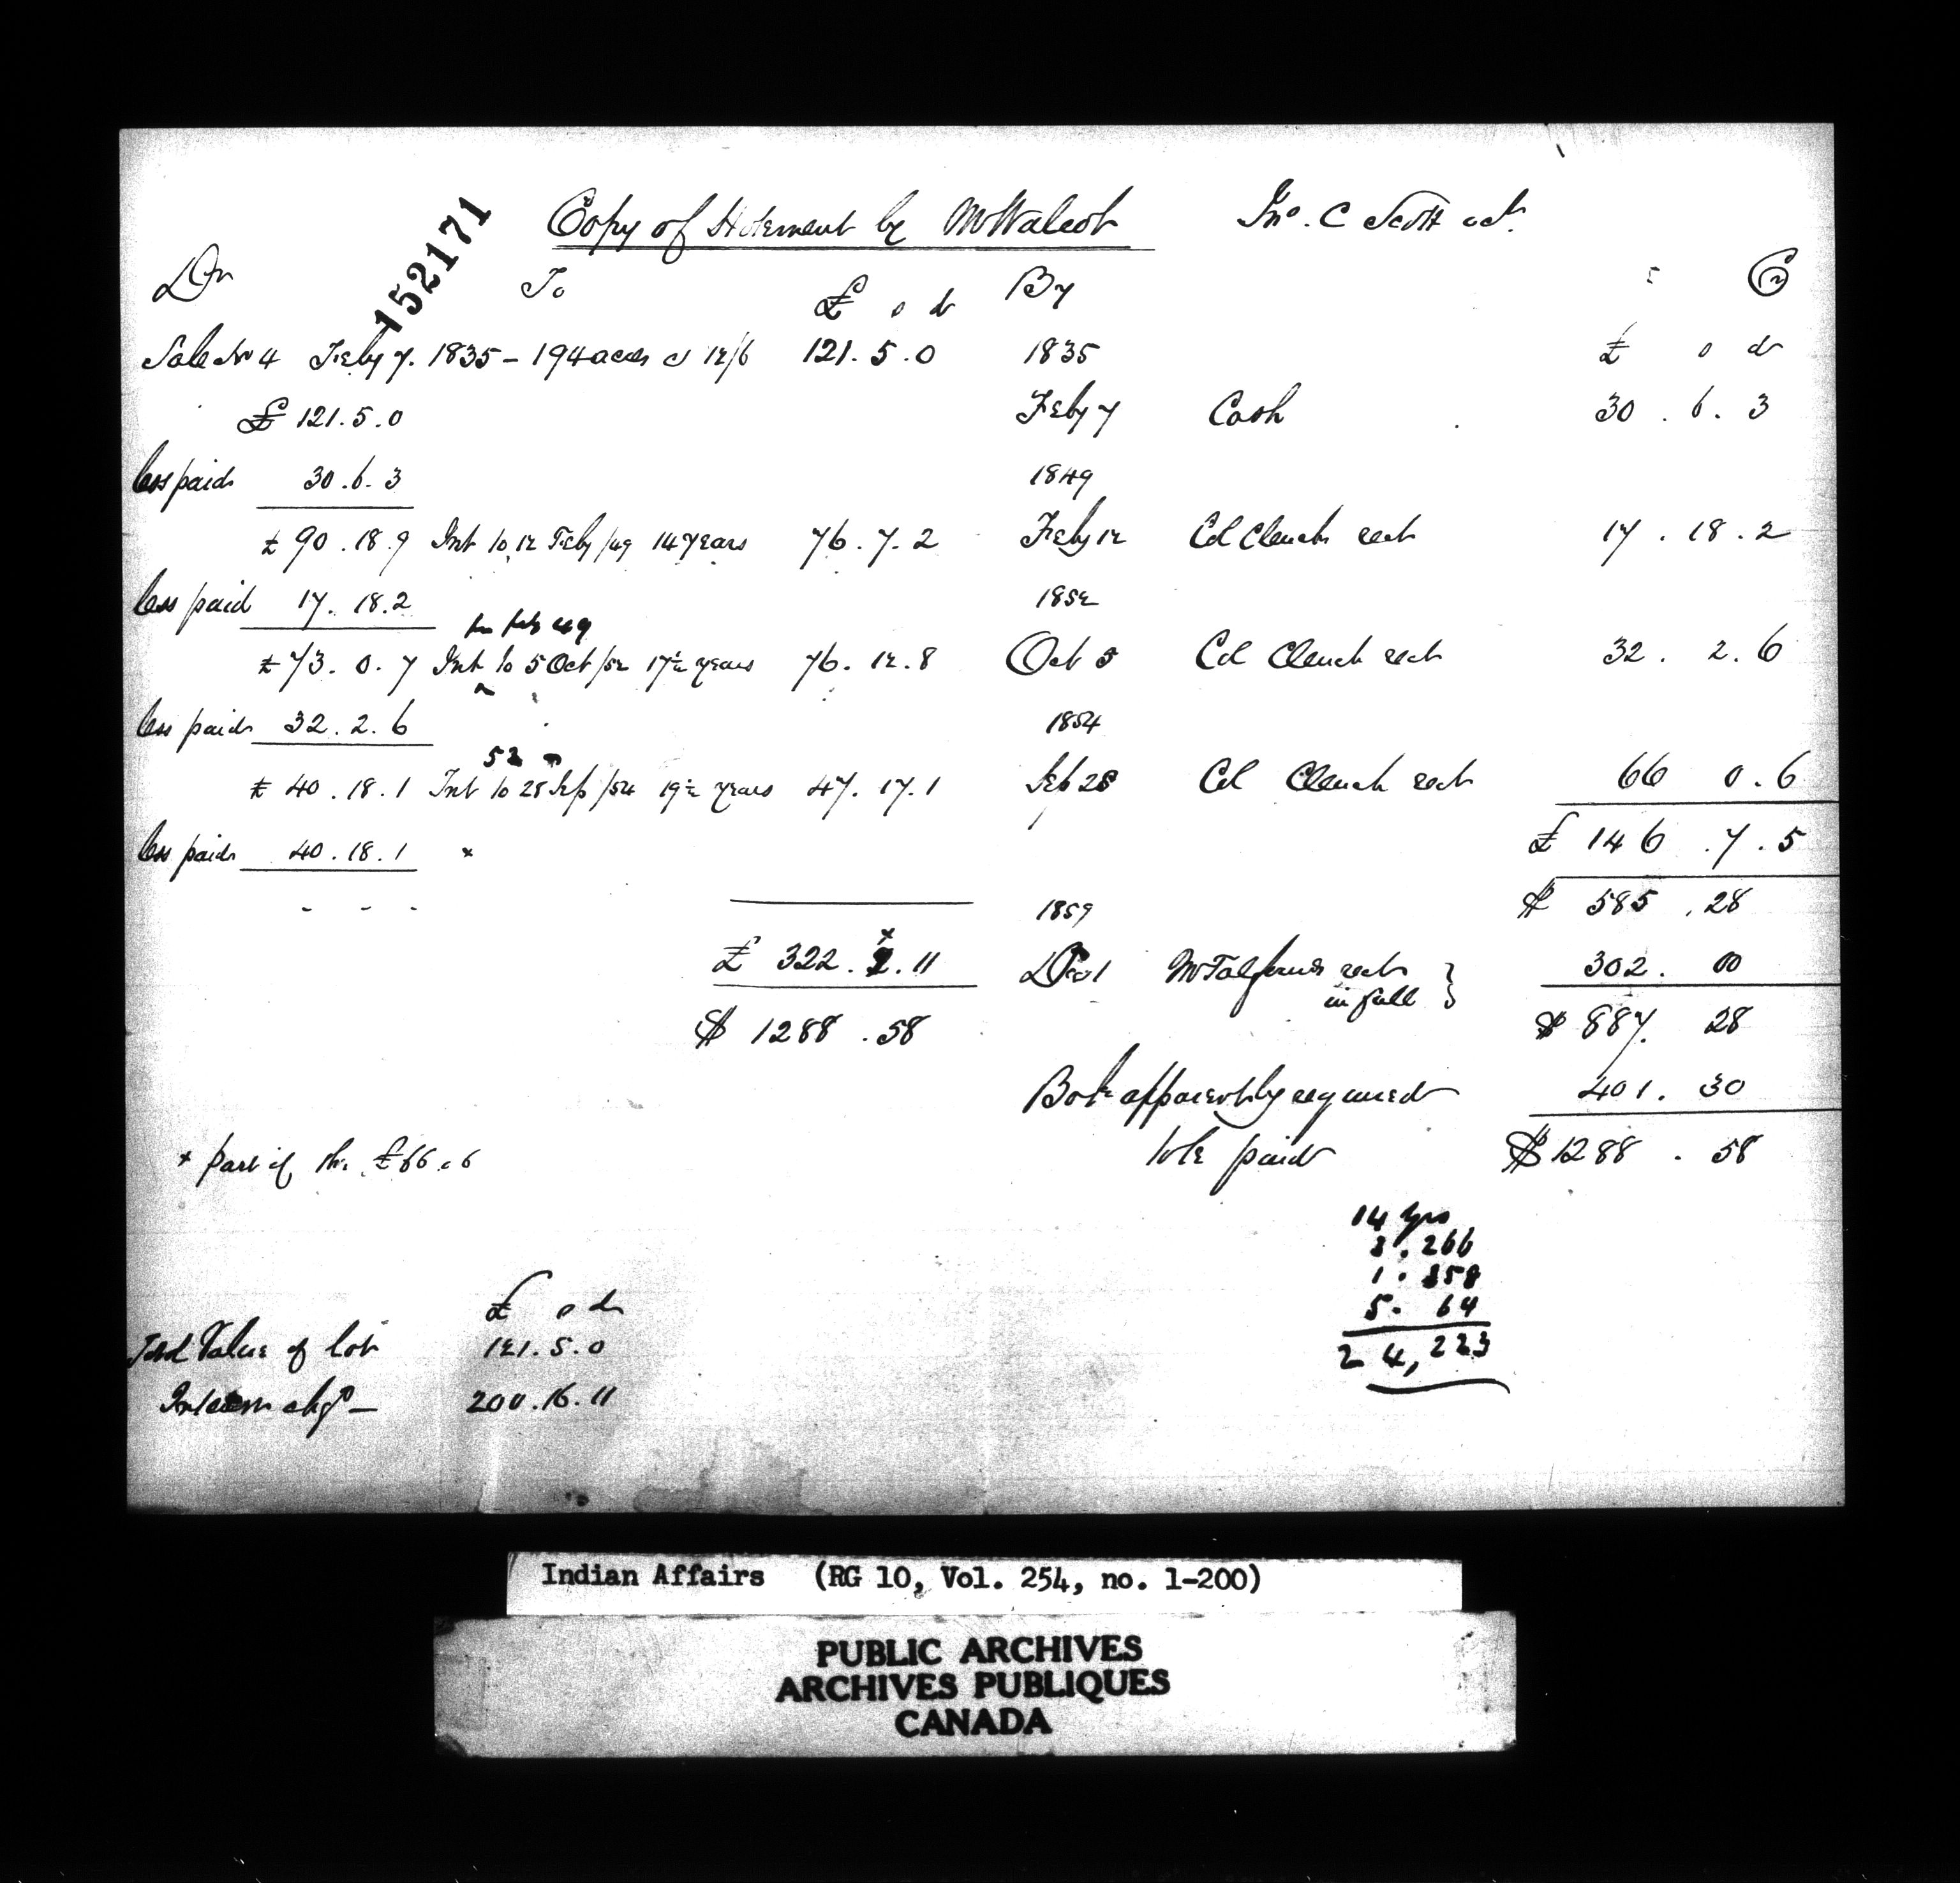 152171
Copy of Statement by Mr Walcot Jno. C Scott act.
Dr To £ s d By Cr
Sale No 4 Feby 7. 1835 - 194 acres @ 12/6 121. 5. 0 1835 £ s d
£ 121. 5. 0 Feby 7 Cash 30 . 6 . 3
less paid 30 . 6 . 3 1849
£ 90 . 18 . 9 Int to 12 Feby /49 14 years 76 . 7 . 2 Feby 12 Col Clench rect 17 . 18 . 2
less paid 17 . 18 . 2 1852
fm feb 49
£ 73 . 0 . 7 Int to 5 Oct /52 17½ years 76 . 12 . 8 Oct 5 Col Clench rect 32 . 2 . 6
less paid 32 . 2 . 6 1854
52
£ 40 . 18 . 1 Int to 28 Sep /54 19½ years 47 . 17 . 1 Sep 28 Col Clench rect 66 0 . 6
less paid 40 . 18 . 1 x £ 146 . 7 . 5
- - - 1859 $ 585 . 28
x
£ 322 . 1 . 11 Dec 1 rect in full } 302 . 00
$ 1288 . 58 $ 887 . 28
Bale apparently required 401 . 30
to be paid $ 1288 . 58
x part of the £66 . 0 . 6
14 yrs
3 . 266
1 . 358
5 . 64
24,223
£ s d
Total Value of lot 121 . 5 . 0
Interest chgd - 200 . 16 . 11
Indian Affairs (RG 10, Vol. 254, no. 1-200)
PUBLIC ARCHIVES
ARCHIVES PUBLIQUES
CANADA